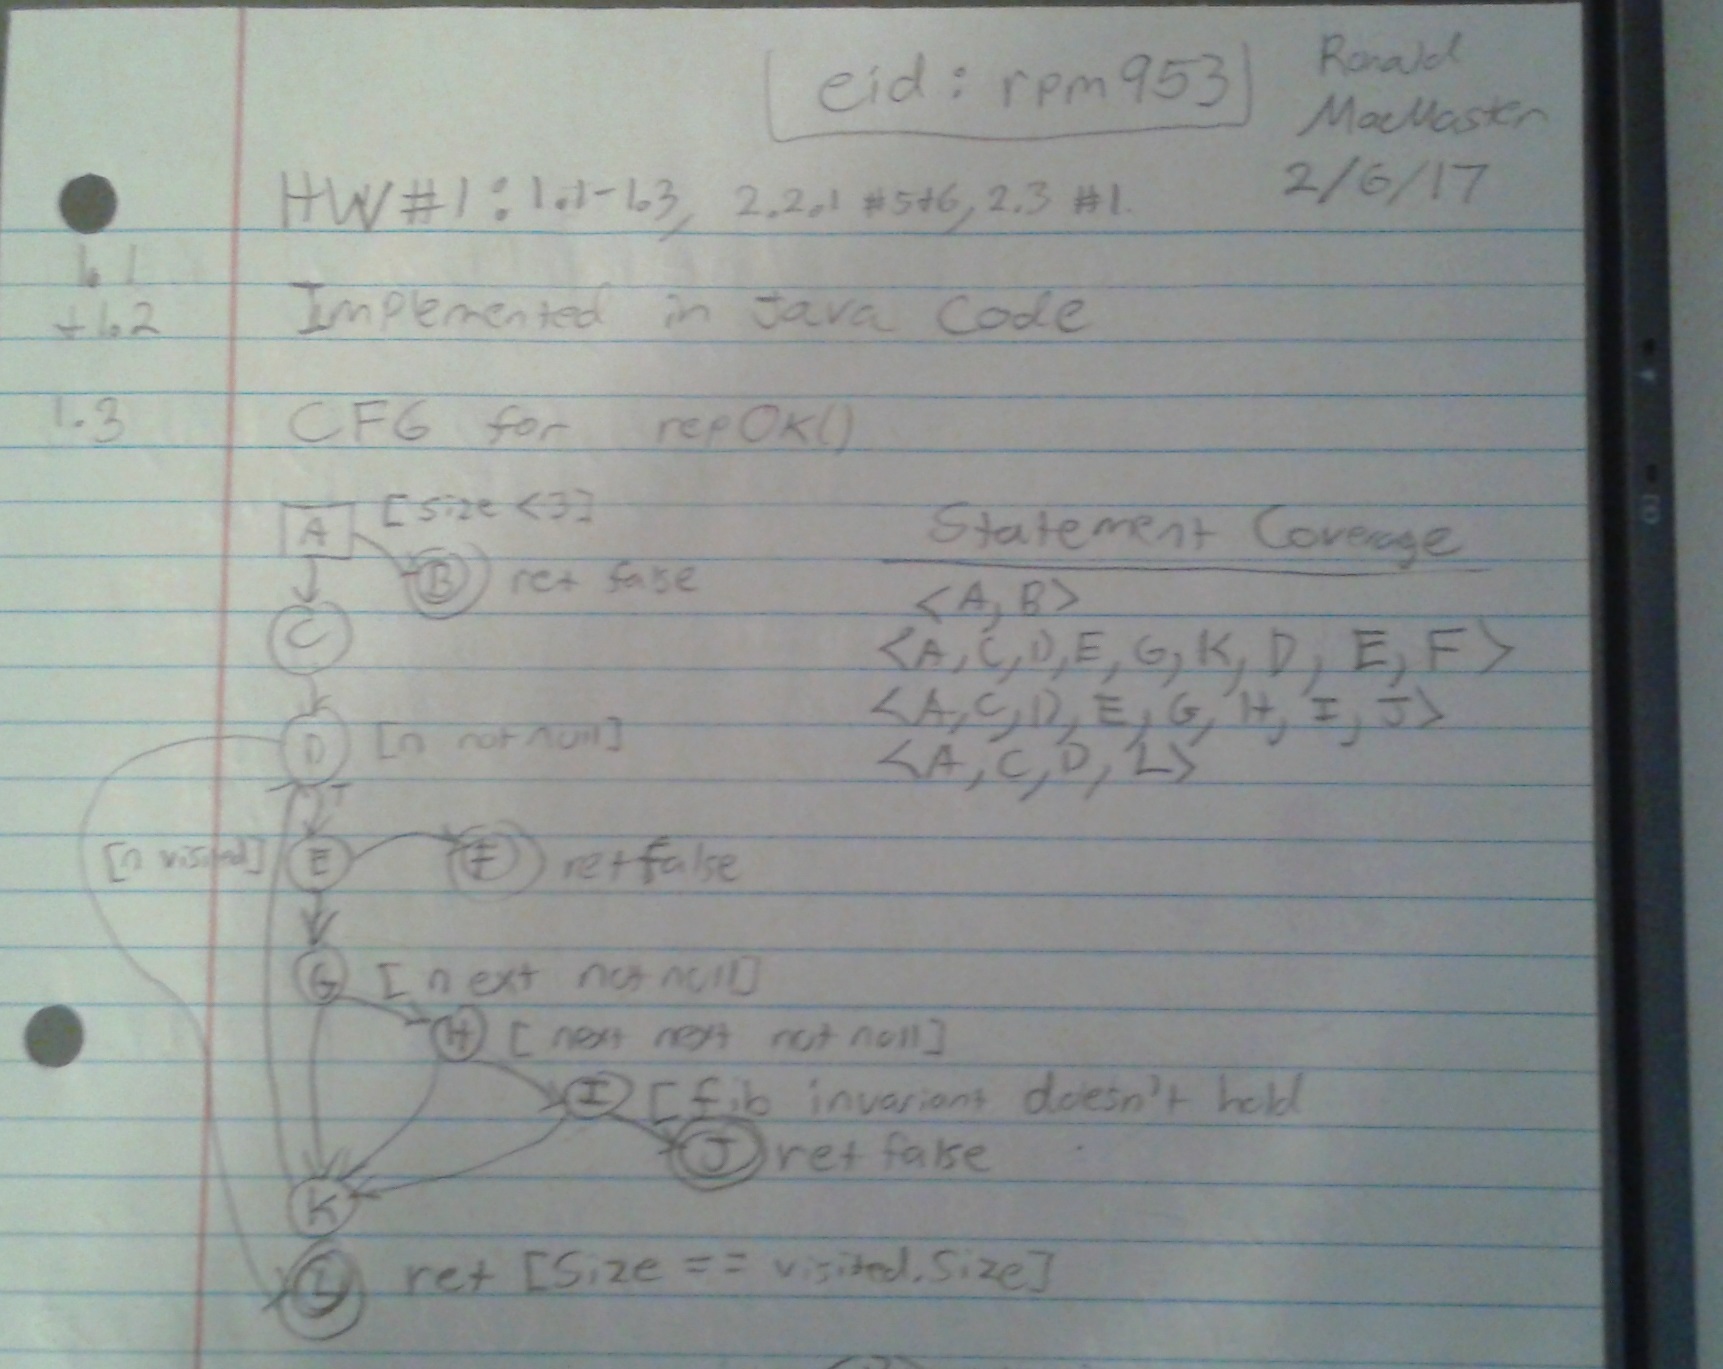 eid: rpm953
Ronald
MacMaster
2/6/17
HW#1: 1.1-1.3, 2.2.1 #5+6, 2.3 #1.
1.1
+1.2
Implemented in Java Code
1.3
CFG for repOk()
A [size <3]
B ret false
C
D [n not null]
[n visited] E
F ret false
G [next not null]
H [next next not null]
I [fib invariant doesn't hold
J ret false
K
L ret [Size == visited.Size]
Statement Coverage
<A, B>
<A, C, D, E, G, K, D, E, F>
<A, C, D, E, G, H, I, J>
<A, C, D, L>